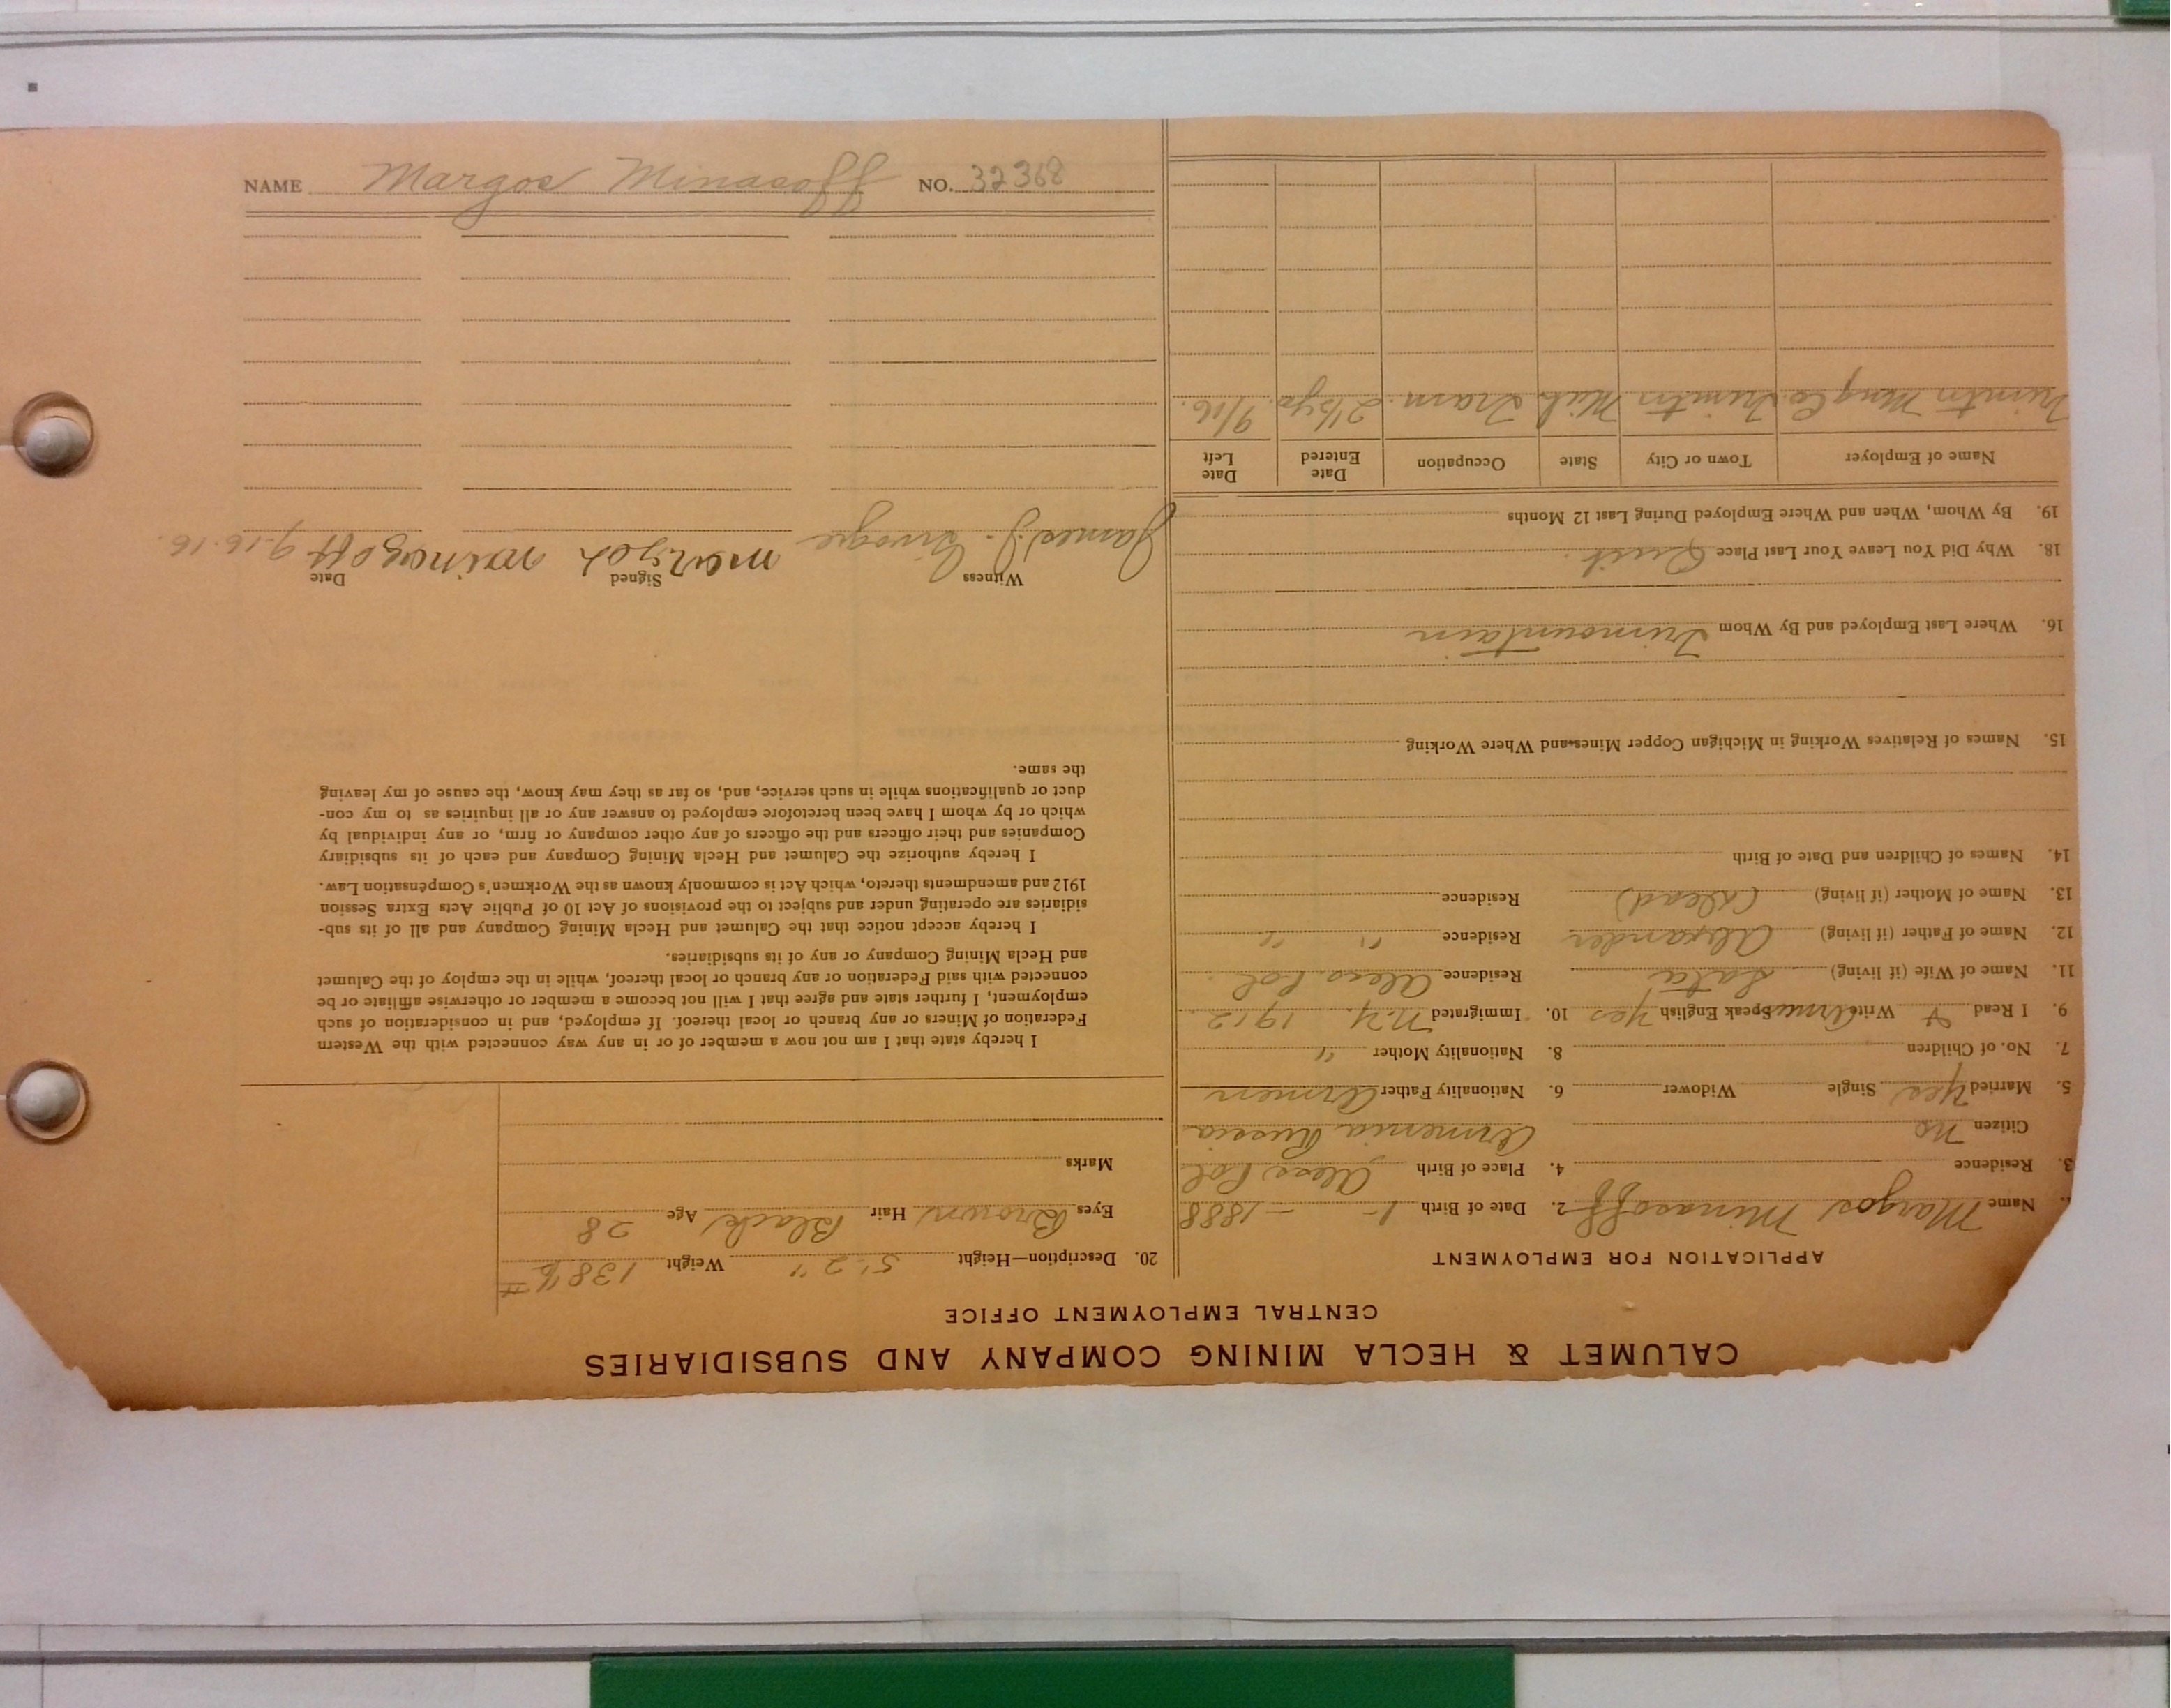 CALUMET & HECLA MINING COMPANY AND SUBSIDIARIES
CENTRAL EMPLOYMENT OFFICE
APPLICATION FOR EMPLOYMENT
Name Margos Minasoff 2. Date of Birth 1 - - 1888
3. Residence 4. Place of Birth Alexs Pol
Citizen No Armenia Russia
5. Married Yes Single Widower 6. Nationality Father Armen
7. No. of Children 8. Nationality Mother "
9. I Read & Write Armen Speak English Yes 10. Immigrated N.Y. 1912
11. Name of Wife (if living) Residence Alexs Pol
12. Name of Father (if living) Alexander Residence " "
13. Name of Mother (if living) (Dead) Residence
14. Names of Children and Date of Birth
15. Names of Relatives Working in Michigan Copper Mines and Where Working
16. Where Last Employed and By Whom Trimountain
18. Why Did You Leave Your Last Place Quit.
19. By Whom, When and Where Employed During Last 12 Months
Name of Employer Town or City State Occupation Date Entered Date Left
Trimtn Mng Co. Trimtn Mich Tram. 2 1/2 yrs. 9/16.
20. Description—Height 5' 2" Weight 138 lb
Eyes Brown Hair Black Age 28
Marks
I hereby state that I am not now a member of or in any way connected with the Western
Federation of Miners or any branch or local thereof. If employed, and in consideration of such
employment, I further state and agree that I will not become a member or otherwise affiliate or be
connected with said Federation or any branch or local thereof, while in the employ of the Calumet
and Hecla Mining Company or any of its subsidiaries.
I hereby accept notice that the Calumet and Hecla Mining Company and all of its sub-
sidiaries are operating under and subject to the provisions of Act 10 of Public Acts Extra Session
1912 and amendments thereto, which Act is commonly known as the Workmen's Compensation Law.
I hereby authorize the Calumet and Hecla Mining Company and each of its subsidiary
Companies and their officers and the officers of any other company or firm, or any individual by
which or by whom I have been heretofore employed to answer any or all inquiries as to my con-
duct or qualifications while in such service, and, so far as they may know, the cause of my leaving
the same.
Witness Signed Date
James J. margos minasoff 9-16-16.
NAME Margos Minasoff NO. 32368